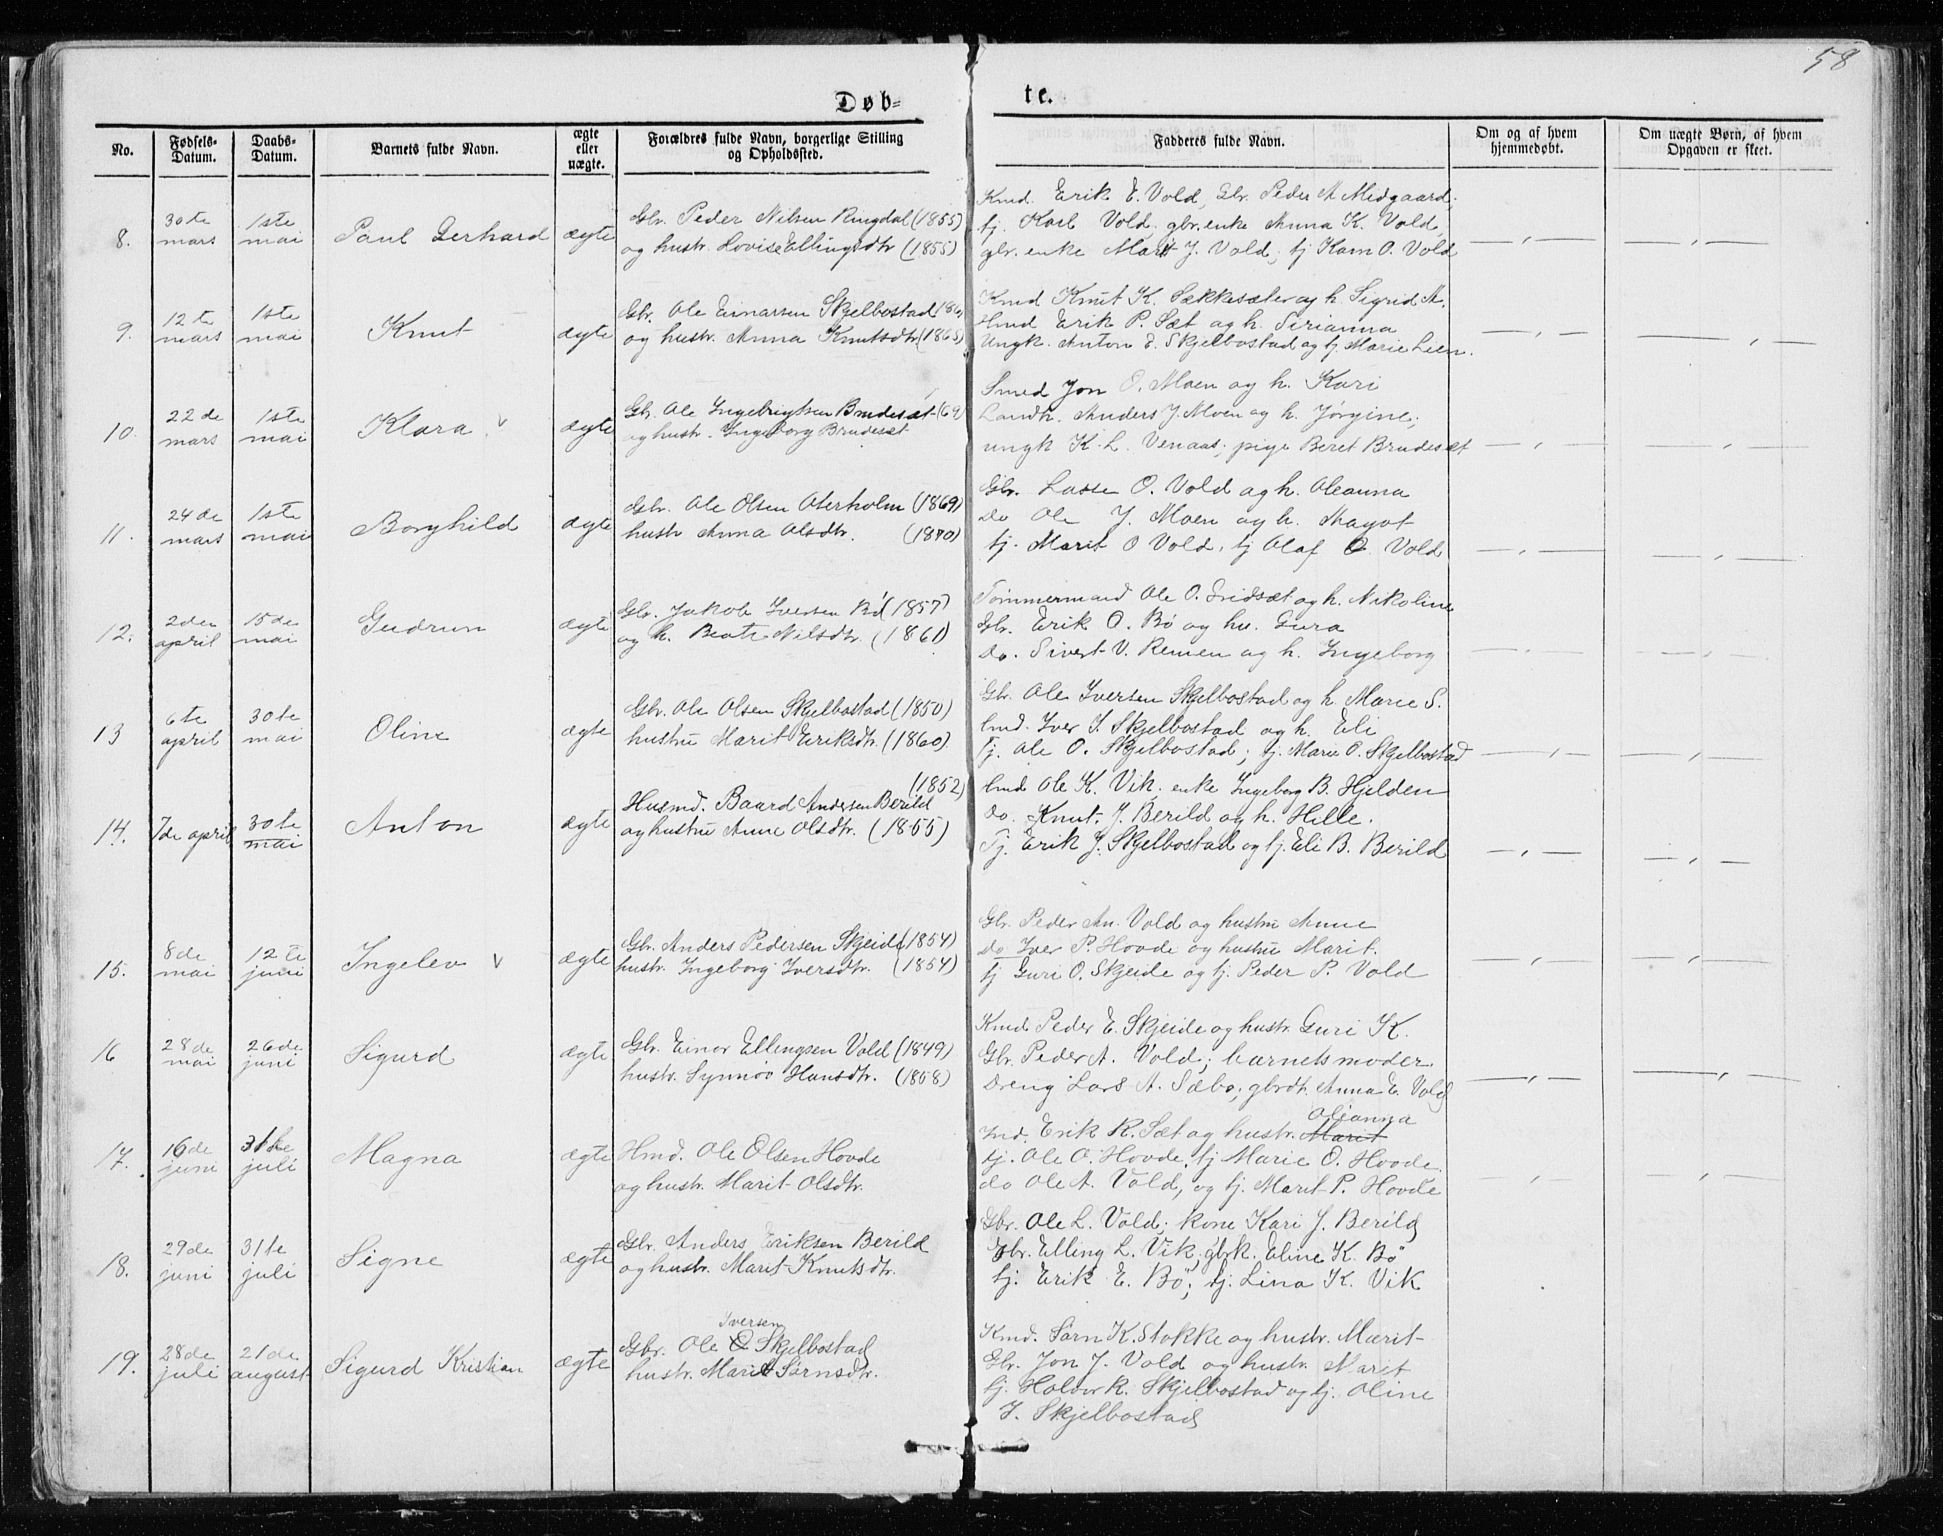 58
Døb= te.
No. Fødsels-Datum. Daabs-Datum. Barnets fulde Navn. ægte eller uægte. Forældres fulde Navn, borgerlige Stilling og Opholdssted. Fadderes fulde Navn. Om og af hvem hjemmedøbt. Om uægte Børn, af hvem Opgaven er skeet.
8. 30te mars 1ste mai Paul Gerhard ægte Gbr. Peder Nilsen Ringdal (1855)
og hustr. Lovise Ellingsdtr (1855)
Kmd. Erik E. Vold, Gbr. Peder A Midgaard,
tj. Karl Vold, gbr. enke Anna K. Vold,
gbr. enke Marit J. Vold, tj Karn O. Vold
9. 12te mars 1ste mai Knut ægte Gbr. Ole Einarsen Skjelbostad
og hustr. Anna Knutsdtr (1865)
Kmd Knut K. Sekkesæter og h. Sigrid A.
Hmd Erik P. Sæt og h. Sirianna
Ungk. Anton E. Skjelbostad og tj. Marie Lien.
10. 22de mars 1ste mai Klara ægte Gb. Ole Ingebrigtsen Brudesæt (69)
og hustr. Ingeborg Brudesæt
Smed Jon O. Moen og h. Kari
Landh. Anders J. Moen og h. Jørgine;
ungk K. L. Venaas; pige Beret Brudesæt
11. 24de mars 1ste mai Borghild ægte Gbr. Ole Olsen Oterholm (1869)
hustr Anna Olsdtr. (1870)
Gbr. Lasse O. Vold og h. Oleanna
Do Ole J. Moen og h. Magot
tj. Marit O Vold, tj Olaf O. Vold
12. 2den april 15de mai Gudrun ægte Gbr. Jakob Iversen Bø (1857)
og h. Beate Nilsdtr. (1861)
Tømmermand Ole O. Indsæt og h. Nikoline
Gbr. Erik O. Bø og hu. Gura
do. Sivert V. Remen og h. Ingeborg
13 6te april 30te mai Oline ægte Gbr. Ole Olsen Skjelbostad (1850)
hustru Marit Eriksdtr. (1860)
Gbr. Ole Iversen Skjelbostad og h. Marie S.
Iver S. Skjelbostad og h. Eli
Tj. Ole O. Skjelbostad; tj. Marie O. Skjelbostad
14. 7de april 30te mai Anton ægte (1852)
Husmd. Baard Andersen Berild
og hustru Anne Olsdtr. (1855)
Ole K. Vik, enke Ingeborg B. Hjelden
do. Knut J. Berild og h. Hille.
Tj. Erik J. Skjelbostad og tj. Eli B. Berild
15. 8de mai 12te juni Ingelev ægte Gbr. Anders Pedersen Skjeide (1854)
hustr. Ingeborg Iversdtr. (1854)
Gbr. Peder An. Vold og hustru Anne
do Iver P. Hovde og hustru Marit.
tj Guri O. Skjeide og tj. Peder P. Vold
16 28de mai 26de juni Sigurd ægte Gbr. Einar Ellingsen Vold (1849)
hustr. Synnøv Hansdtr. (1858)
Kmd Peder E. Skjeide og hustr. Guri K.
Gbr. Peder A. Vold; barnets moder
Dreng Lars A. Sæbø; gbrdt. Anna E. Vold
17. 16de juni 31te juli Magna ægte Hmd. Ole Olsen Hovde
og hustr. Marit Olsdtr.
Olianna
Ind. Erik R. Sæt og hustr. Marit
tj. Ole O. Hovde, tj Marie O. Hovde
do Ole A. Vold, og tj. Marit P. Hovde
18. 29de juni 31te juli Signe ægte Gbr. Anders Eriksen Berild
og hustr. Marit Knutsdtr.
Gbr. Ole L. Vold; kone Kari J. Berild
Gbr. Elling L. Vik, gbrk. Eline K. Bø
tj. Erik E. Bø; tj. Lina K. Vik
19. 28de juli 21de august Sigurd Kristian ægte Iversen
Gbr. Ole O Skjelbostad
hustr. Marit Sørnsdtr.
Kmd. Sørn K. Stokke og hustr. Marit
Gbr. Jon J. Vold og hustr. Marit
tj. Halvor K. Skjelbostad og tj. Oline
J. Skjelbostad